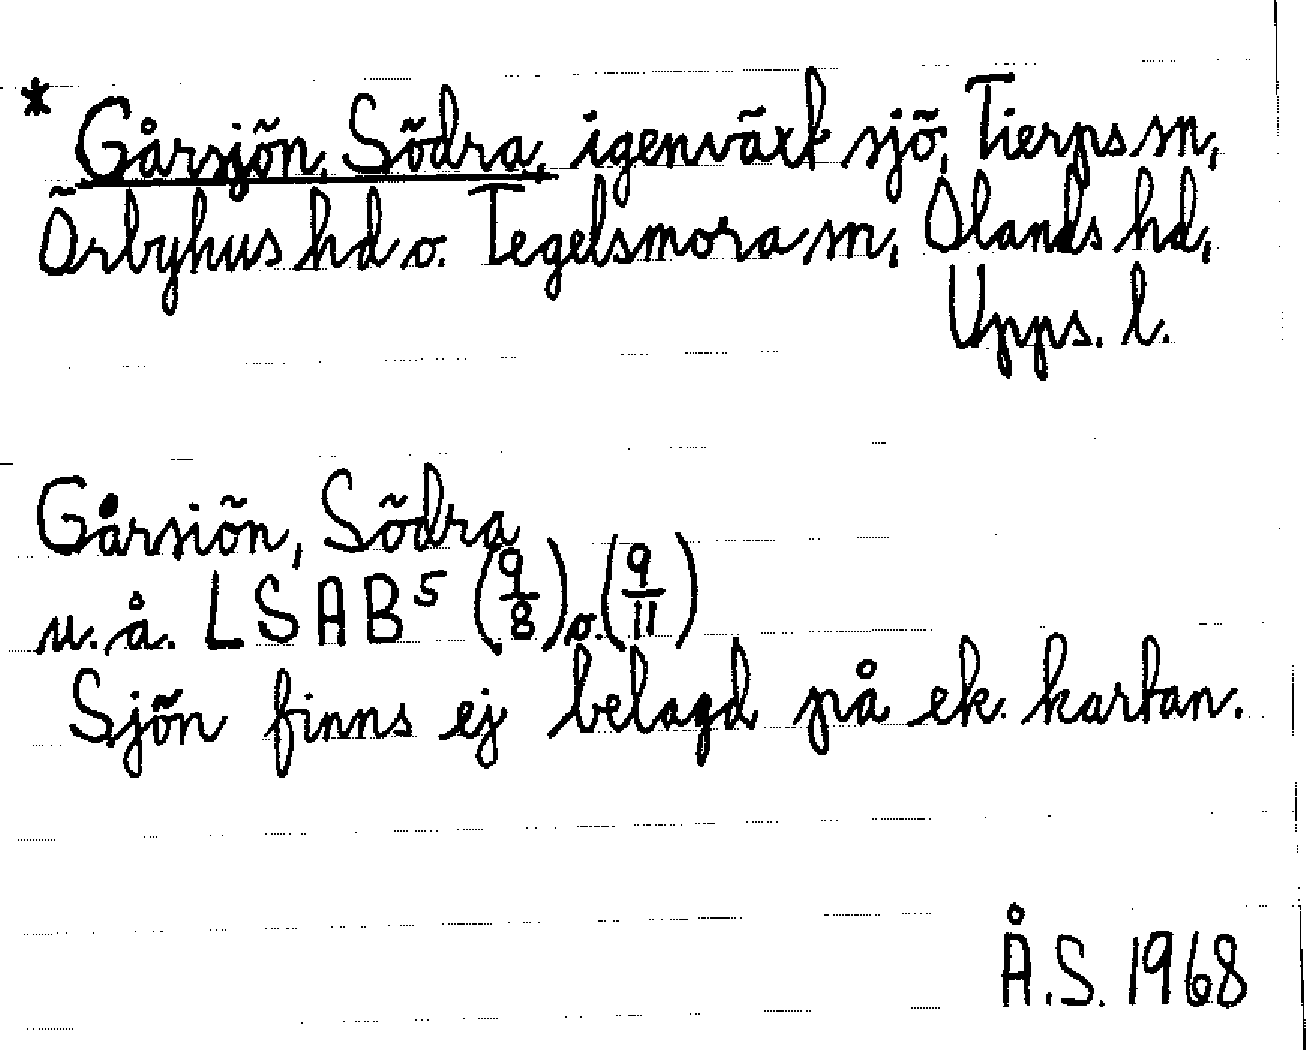 * Gårsjön, Södra, igenväxt sjö, Tierps sn,
Örbyhus hd o. Tegelsmora sn, Olands hd,
Upps. l.
Gårsiön, Södra
u. å. LSAB⁵ (9/8) o. (9/11)
Sjön finns ej belagd på ek. kartan.
Å.S. 1968